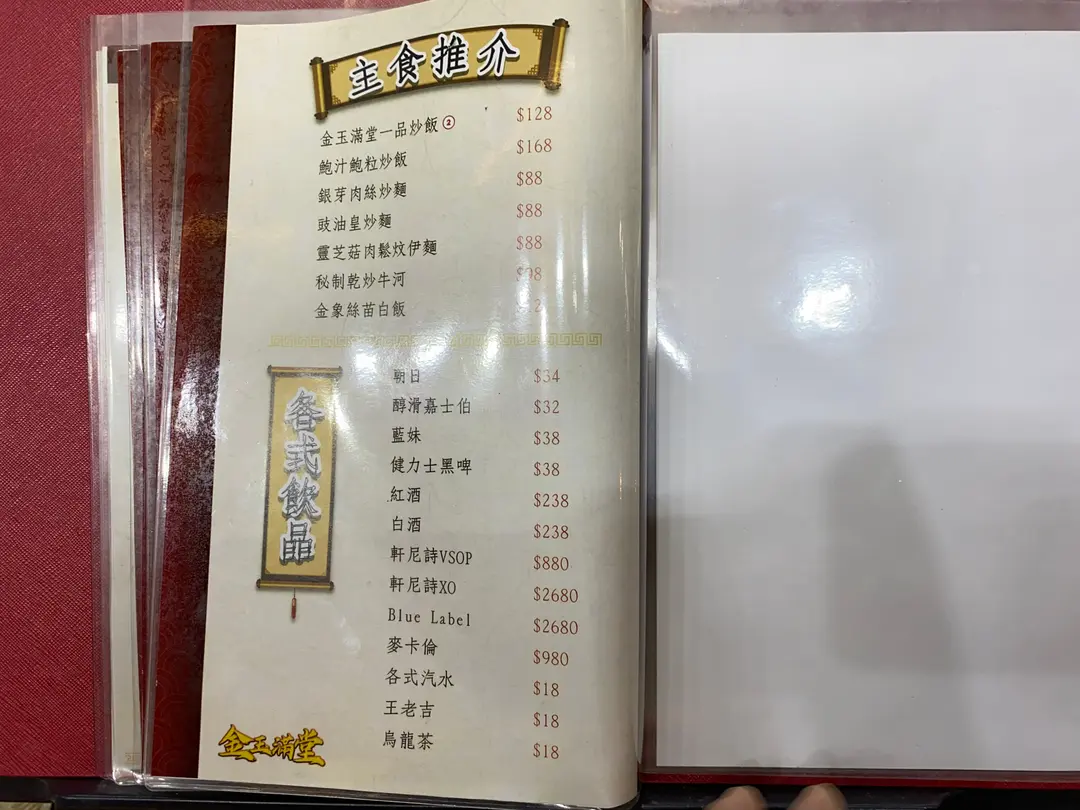 主食推介
金玉滿堂一品炒飯② $128
鮑汁鮑粒炒飯 $168
銀芽肉絲炒麵 $88
豉油皇炒麵 $88
靈芝菇肉鬆炆伊麵 $88
秘制乾炒牛河
金象絲苗白飯
各式飲品
朝日 $34
醇滑嘉士伯 $32
藍妹 $38
健力士黑啤 $38
紅酒 $238
白酒 $238
軒尼詩VSOP $880
軒尼詩XO $2680
Blue Label $2680
麥卡倫 $980
各式汽水 $18
王老吉 $18
烏龍茶 $18
金玉滿堂